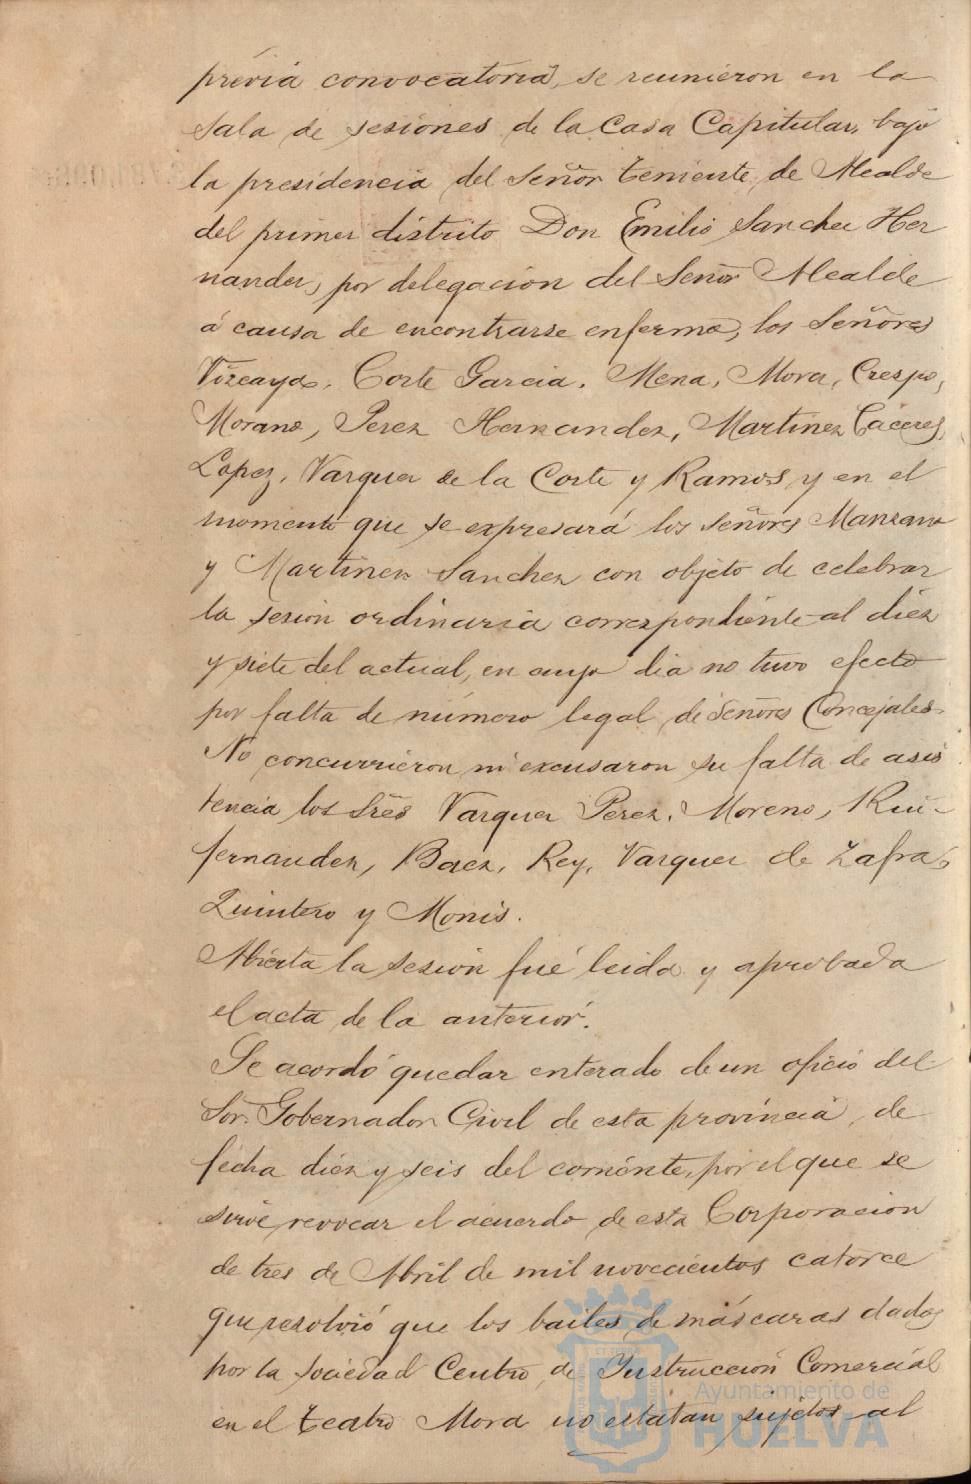 prévia convocatoria, se reunieron en la
Sala de sesiones de la Casa Capitular, bajo
la presidencia del Señor teniente de Alcalde
del primer distrito Don Emilio Sanchez Her
nandez, por delegacion del Señor Alcalde
á causa de encontrarse enfermo, los Señores
Vizcaya, Corte Garcia, Mena, Mora, Crespo,
Morano, Perez Hernandez, Martinez Cáceres,
Lopez, Vazquez de la Corte y Ramos y en el
momento que se expresará los Señores Manzano
y Martinez Sanchez con objeto de celebrar
la sesion ordinaria correspondiente al diez
y siete del actual, en cuyo dia no tuvo efecto
por falta de número legal de Señores Concejales.
No concurrieron ni excusaron su falta de asis
tencia los Sres Vazquez Perez, Moreno, Rui-
fernandez, Baez, Rey, Vazquez de Zafra,
Quintero y Monis.
Abierta la sesion fué leida y aprobada
el acta de la anterior.
Se acordó quedar enterado de un oficio del
Sor. Gobernador Civil de esta provincia, de
fecha diez y seis del corriente, por el que se
sirve revocar el acuerdo de esta Corporacion
de tres de Abril de mil novecientos catorce
que resolvió que los bailes de máscaras dados
por la sociedad Centro de Instruccion Comercial
en el teatro Mora no estatan sujetos al
Ayuntamiento de
HUELVA